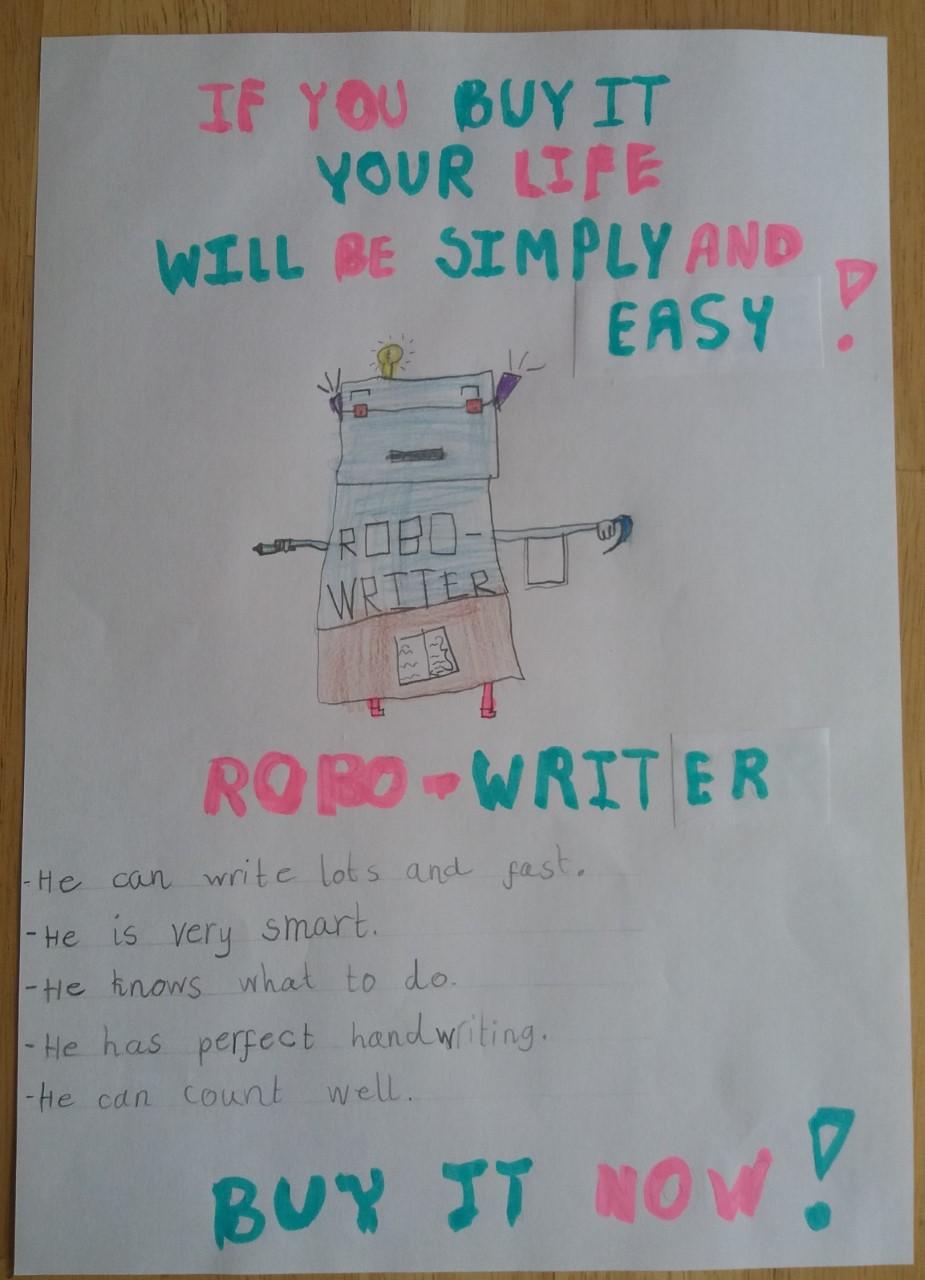 IF YOU BUY IT
YOUR LIFE
WILL BE SIMPLY AND
EASY !
ROBO-
WRITER
ROBO-WRITER
-He can write lots and fast.
-He is very smart.
-He knows what to do.
-He has perfect handwriting.
-He can count well.
BUY IT NOW!